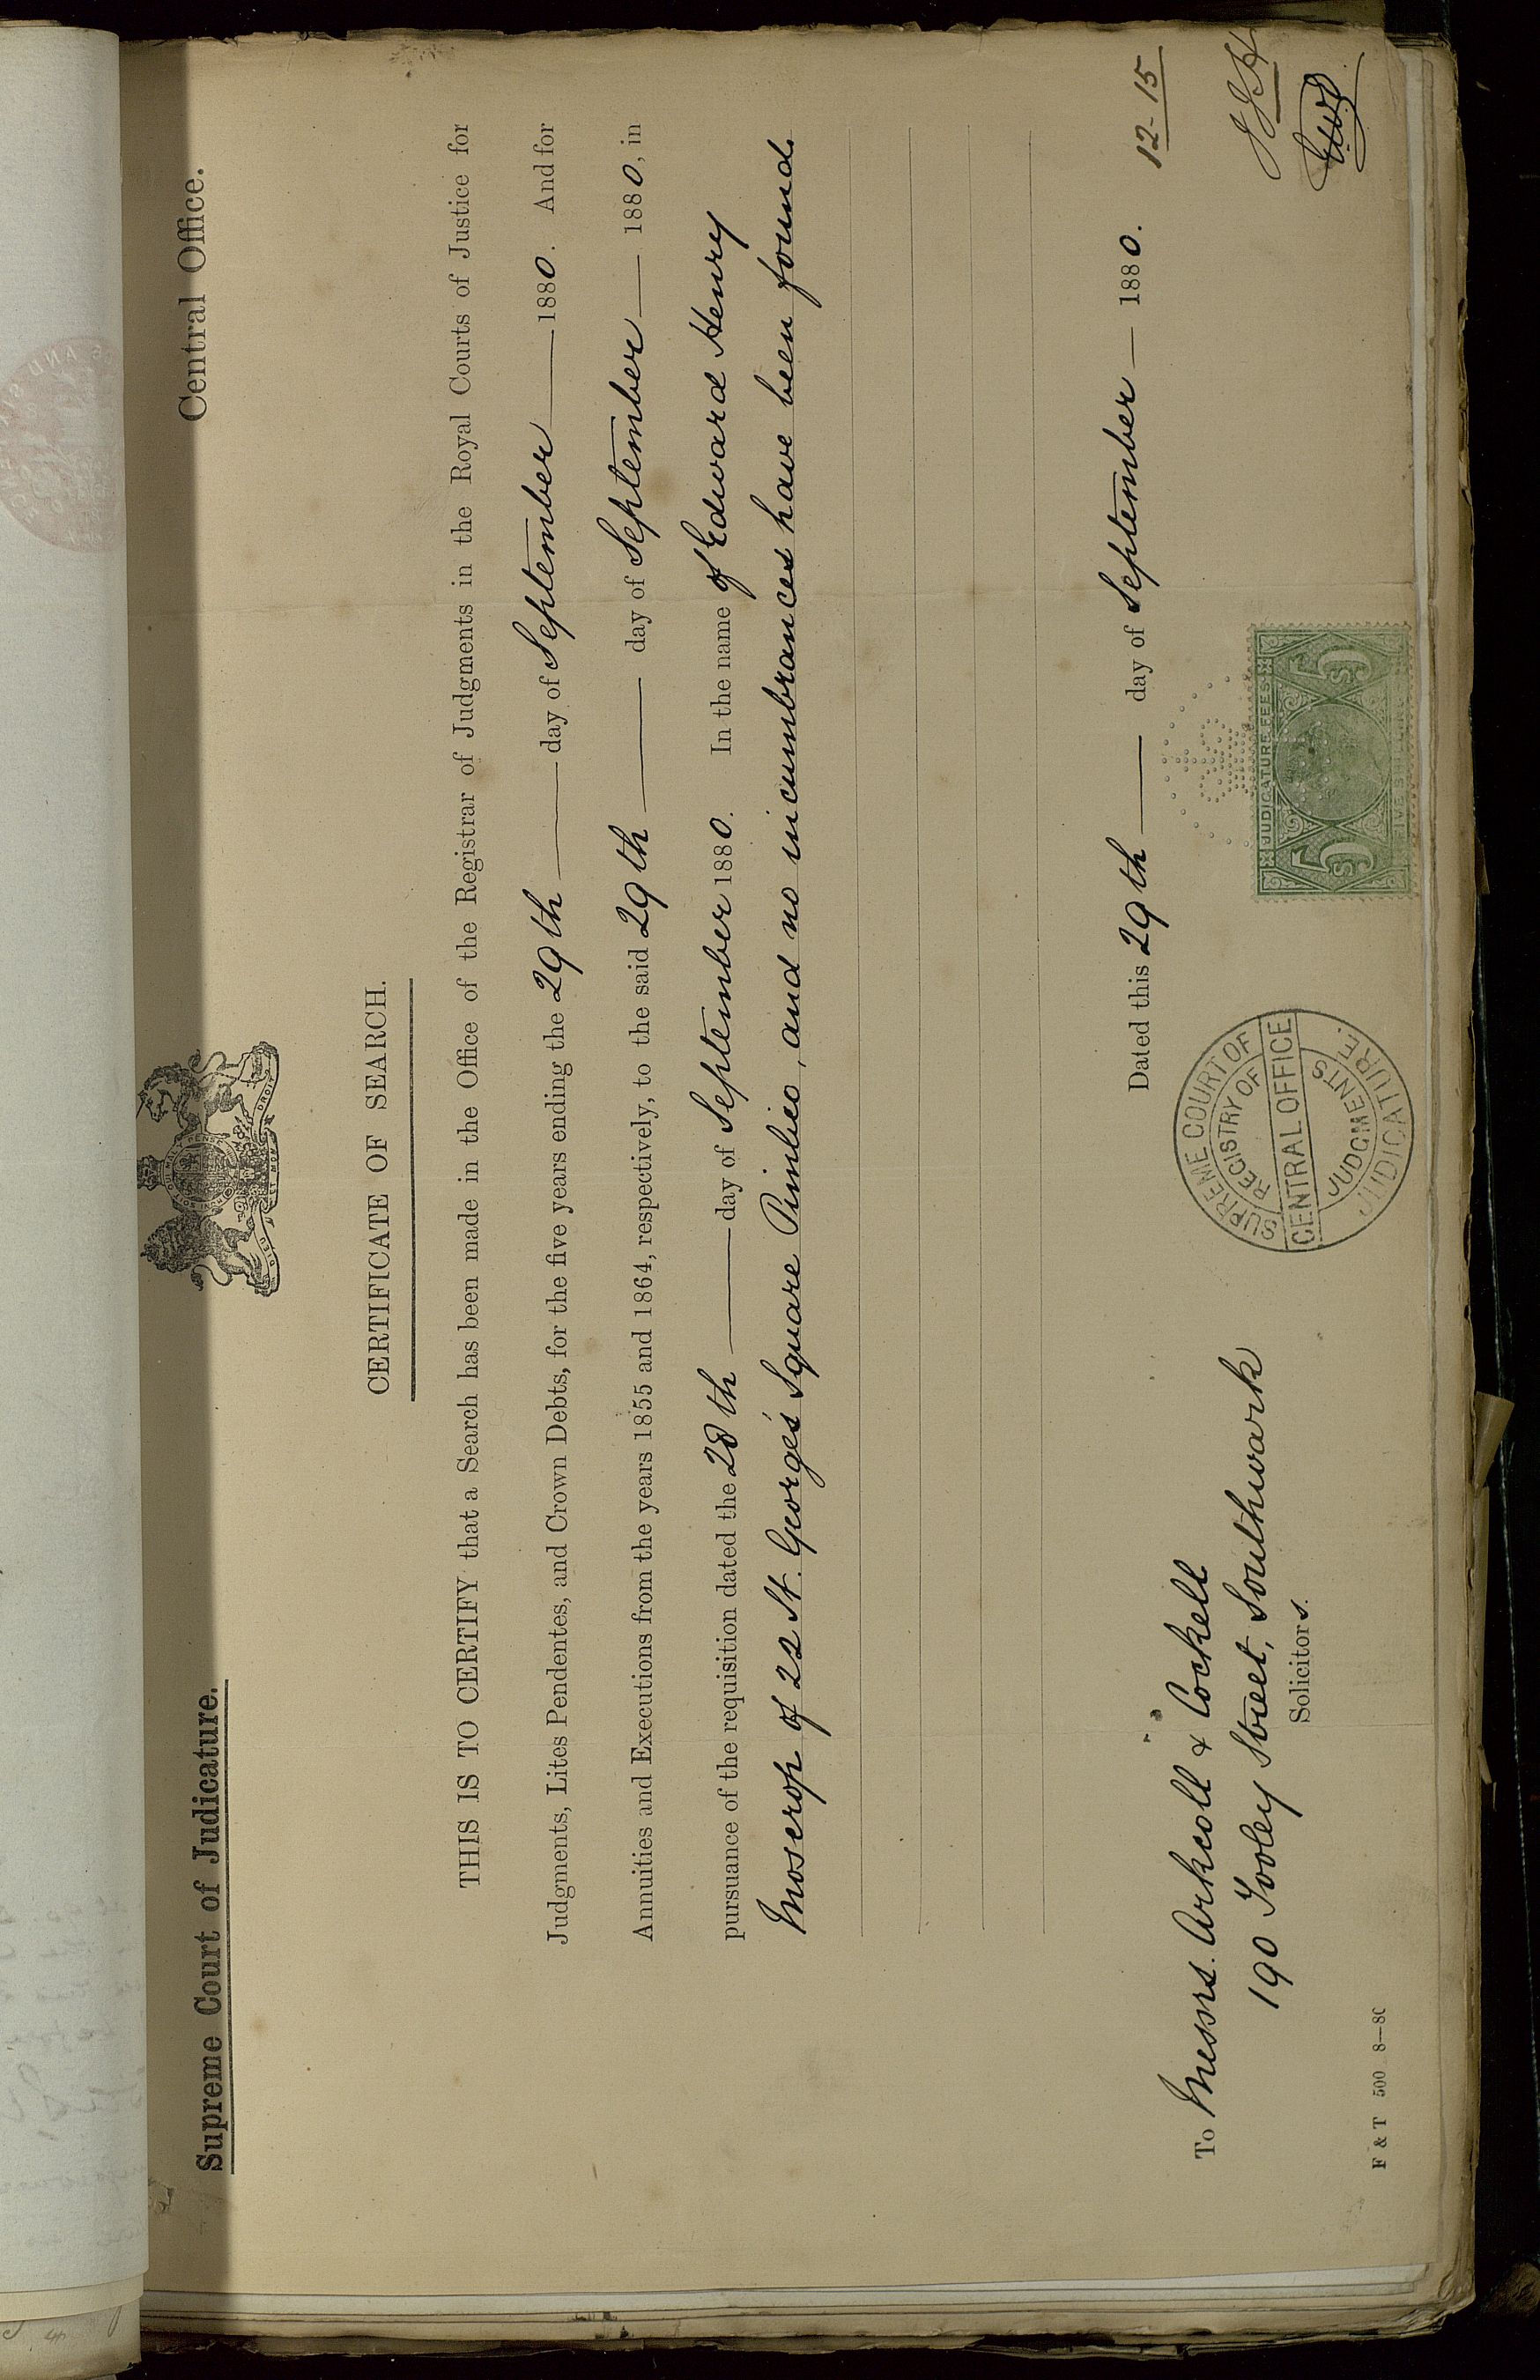 Supreme Court of Judicature.
Central Office.
DIEU ET MON DROIT
CERTIFICATE OF SEARCH.
THIS IS TO CERTIFY that a Search has been made in the Office of the Registrar of Judgments in the Royal Courts of Justice for
Judgments, Lites Pendentes, and Crown Debts, for the five years ending the 29th day of September 1880. And for
Annuities and Executions from the years 1855 and 1864, respectively, to the said 29th day of September 1880, in
pursuance of the requisition dated the 28th day of September 1880. In the name of Edward Henry
Moscrop of 22 St. George's Square Pimlico, and no incumbrances have been found.
Dated this 29th day of September 1880.
12-15
To Messrs. Arkcoll & Cockell
190 Tooley Street, Southwark
Solicitors.
SUPREME COURT OF JUDICATURE.
REGISTRY OF JUDGMENTS
CENTRAL OFFICE
JUDICATURE FEES
5S 5S
FIVE SHILLINGS
F & T 500 8—80